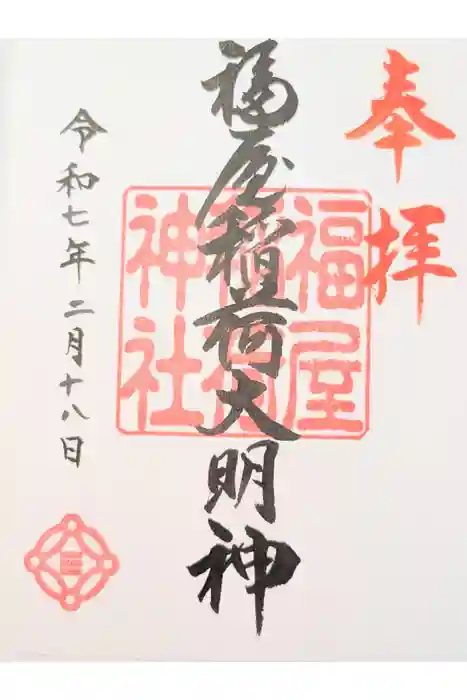 奉拝
福屋稲荷大明神
福屋稲荷神社
令和七年二月十八日
三